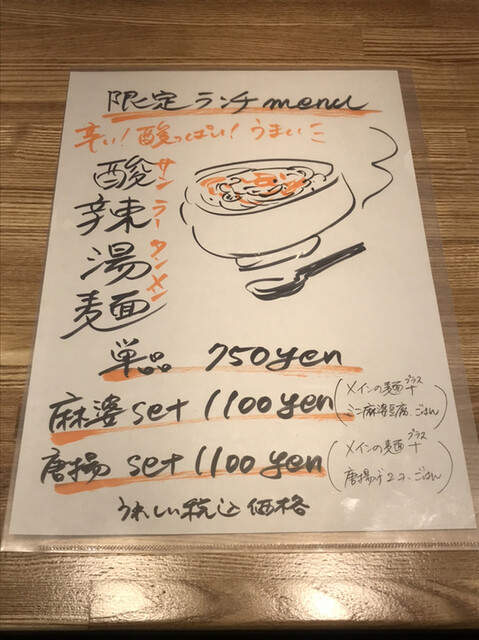 限定ランチmenu
辛い！酸っぱい！うまい！
酸辣湯麺
サンラータンメン
単品 750yen
麻婆set 1100yen
(メインの麺+プラス
ミニ麻婆豆腐、ごはん)
唐揚set 1100yen
(メインの麺+プラス
唐揚げ2コ、ごはん)
うれしい税込価格